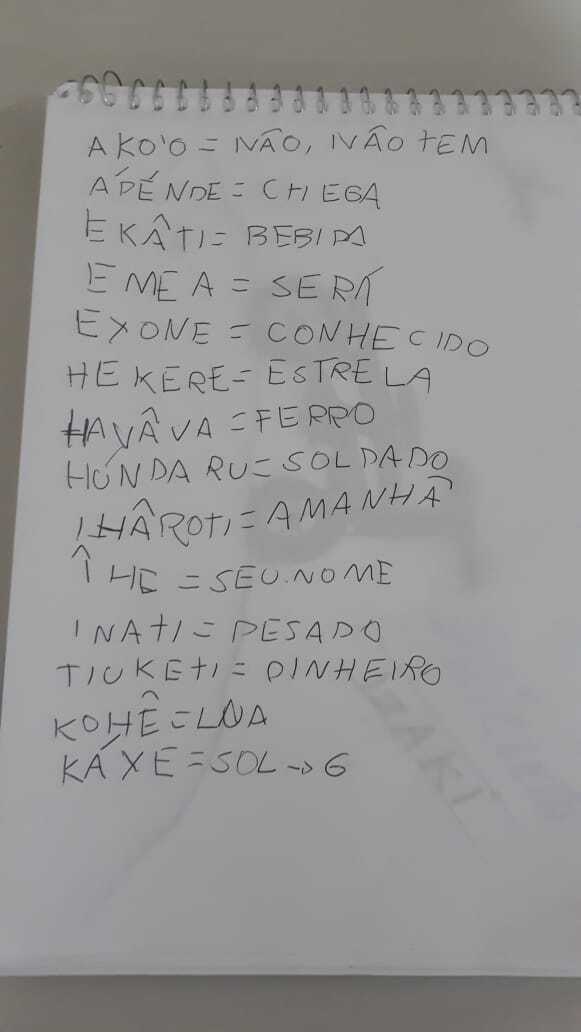 AKO'O = NÃO, NÃO TEM
ÁPÉNDE = CHEGA
EKÂTI = BEBIDA
EMEA = SERÁ
EXONE = CONHECIDO
HEKERE = ESTRELA
HAYÂVA = FERRO
HÚNDARU = SOLDADO
IHÂROTI = AMANHÃ
ÎHE = SEU NOME
INATI = PESADO
TIUKETI = DINHEIRO
KOHÊ = LUA
KÁXE = SOL -> 6